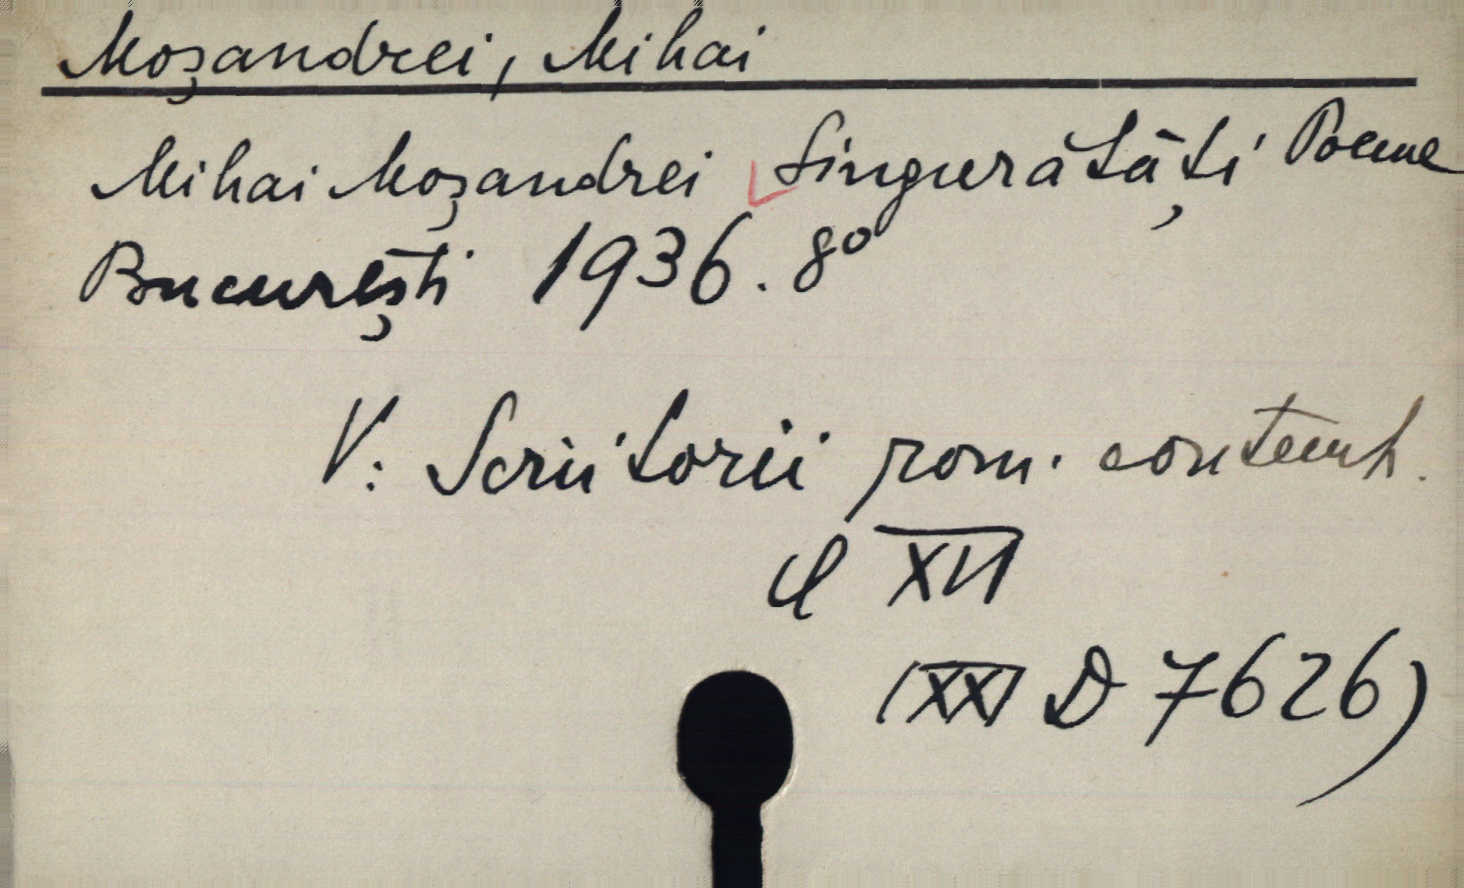 Moșandrei, Mihai
Mihai Moșandrei Singurătăți Poeme
București 1936. 8º
V: Scriitorii rom. contemp.
XVI
(XXI D 7626)